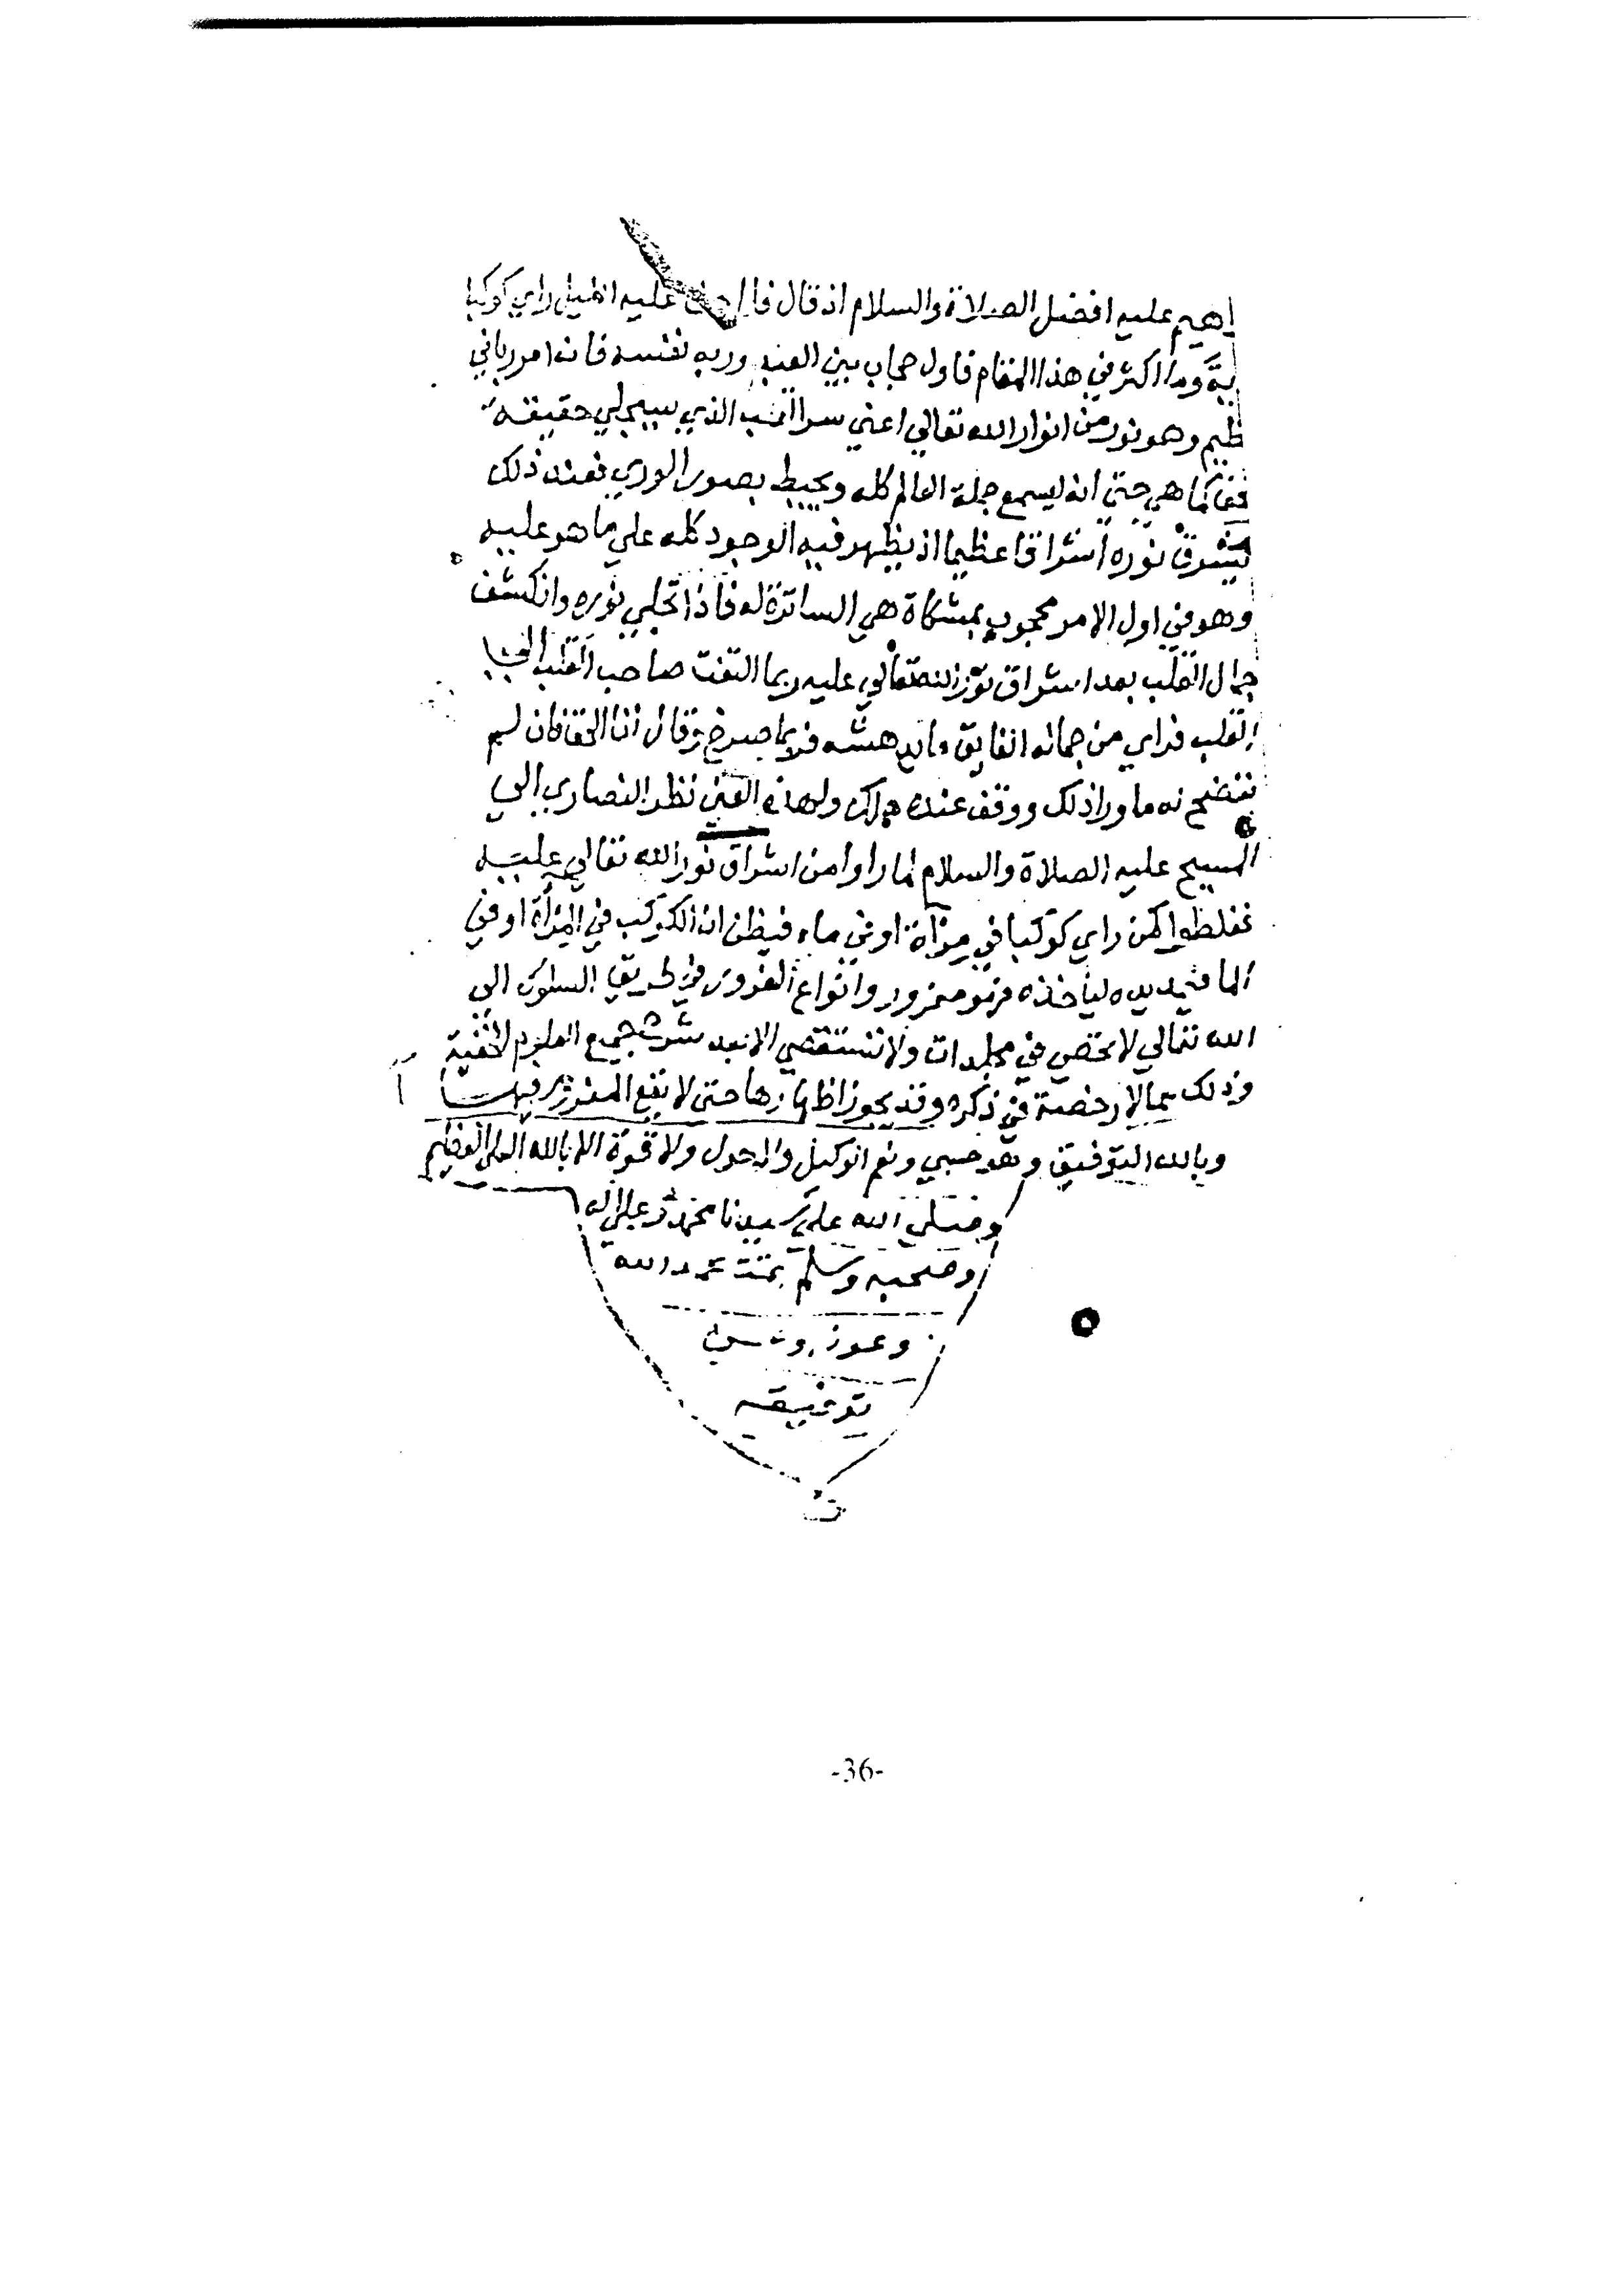 اهيم عليه افضل الصلاة والسلام اذ قال فلما جن عليه الليل راي كوكبا
الاية وما اكثر في هذا المقام فاول حجاب بين العبد وربه نفسه فانه امر رباني
عظيم وهو نور من انوار الله تعالي اعني سر القلب الذي سيتجلي حقيقة
كما هي حتي انه ليسع جملة العالم كله ويحيط بصور الوري فعند ذلك
يشرق نوره اشراقا عظيما اذ يظهر فيه الوجود كله علي ما هو عليه
وهو في اول الامر محجوب بمشكاة هي الساترة له فاذا تجلي نوره وانكشف
جمال القلب بعد اشراق نور الله تعالي عليه ربما التفت صاحب القلب الي
القلب فراي من جماله الفايق ما يدهشه فربما صرخ وقال انا الحق فان لم
يتضح له ما وراذلك ووقف عنده هلك ولهذه العين نظر النصاري الي
المسيح عليه الصلاة والسلام لما راوا من اشراق نور الله تعالي عليه
فغلطوا كمن راي كوكبا في مرآة او في ماء فيظن ان الكوكب في المرآة او في
الما فيمد يده لياخذه فهو مغرور وانواع الغرور في طريق السلوك الي
الله تعالي لا تحصي في مجلدات ولا تستقصي الا بعد شرح جميع العلوم الخفية
وذلك مما لا رخصة في ذكره وقد يجوز اظهارها حتي لا يقع المغرور فيها
وبالله التوفيق وهو حسبي ونعم الوكيل ولا حول ولا قوة الا بالله العلي العظيم
وصلي الله علي سيدنا محمد وعلي اله
وصحبه وسلم تمت بحمد الله
وعونه وحسن
توفيقه
ت
-36-